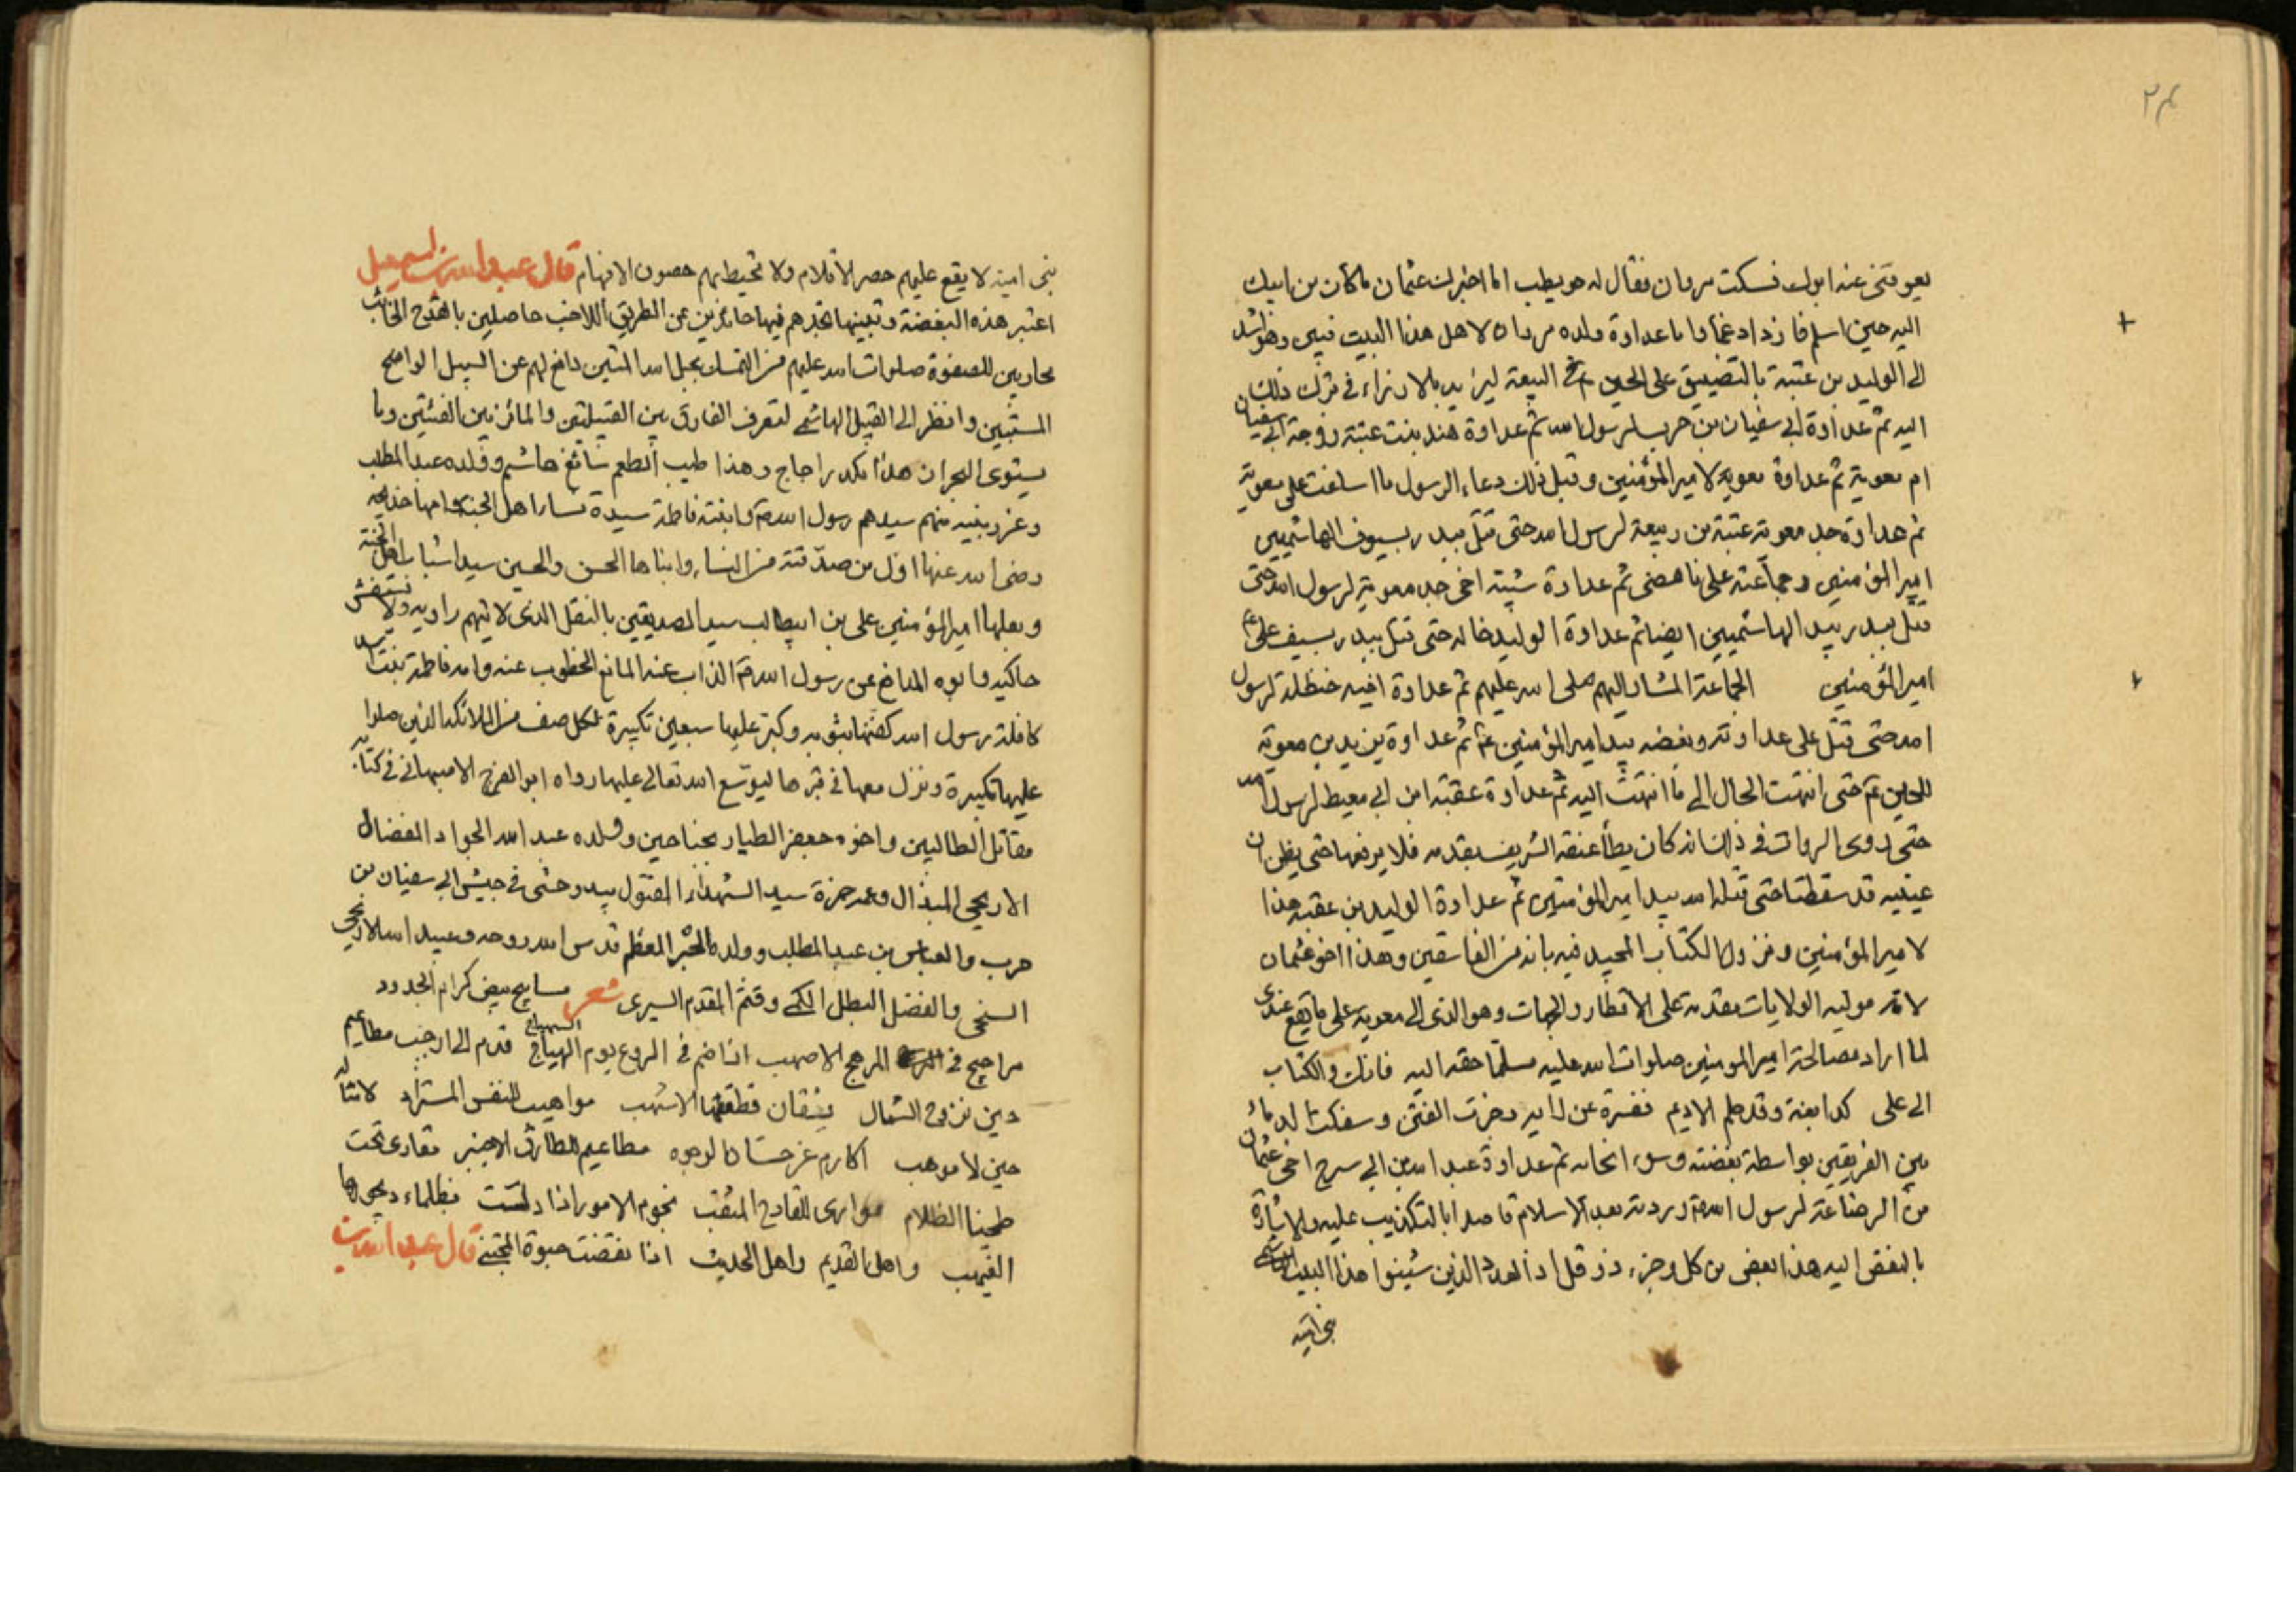 ٢٤
يعوقني عنه ابوك فسكت مروان فقال له حويطب اما اخبرك عثمان ما كان من ابيك
اليه حين اسلم فازداد غما واما عداوة ولده مروان لاهل هذا البيت فبين وهو
الى الوليد بن عتبة بالتضييق على الحسين ع في البيعة ليزيد بلا ونراء في ترك ذلك
اليه ثم عداوة ابى سفيان بن حرب لرسول الله ثم عداوة هند بنت عتبة زوجة ابى سفيان
ام معوية ثم عداوة معوية لامير المؤمنين وقبل ذلك دعاء الرسول ما اسلفت على معوية
ثم عداوة جد معوية عتبة بن ربيعة لرسول الله حتى قتل ببدر بسيوف الهاشميين
امير المؤمنين وجماعته على ما مضى ثم عداوة شيبة اخى جد معوية لرسول الله حتى
قتل ببدر بيد الهاشميين ايضا ثم عداوة الوليد خاله حتى قتل ببدر بسيف على ع
امير المؤمنين الجماعة المشار اليهم صلى الله عليهم ثم عداوة اخيه حنظلة لرسول
الله حتى قتل على عداوته وبغضه بيد امير المؤمنين ع ثم عداوة يزيد بن معوية
للحسين ع حتى انتهت الحال الى ما انتهت اليه ثم عداوة عقبة ابن ابى معيط لرسول الله
حتى روى الرواة في ذلك انه كان يطأ عنقه الشريف بقدمه فلا يرفعها حتى يظن ان
عينيه قد سقطتا حتى قتله الله بيد امير المؤمنين ثم عداوة الوليد بن عقبة هذا
لامير المؤمنين ونزول الكتاب المجيد فيه بانه من الفاسقين وهذا اخو عثمان
لامه موليه الولايات مقدمه على الاقطار والجهات وهو الذى الى معوية على ما يقع عندى
لما اراد مصالحة امير المومنين صلوات الله عليه مسلما حقه اليه فانك والكتاب
الى على كدابغة وقد حلم الاديم ففتره عن رايه وجرت الفتن وسفكت الدمائ
بين الفريقين بواسطة بغضته وسوء انحائه ثم عداوة عبد الله بن ابى سرح اخى عثمان
من الرضاعة لرسول الله ص وردته بعد الاسلام قاصدا بالتكذيب عليه والاشارة
بالنقص اليه هذا بعض من كل وجزء من قل اذ العدد الذين شينوا هذا البيت
بنى اميه
بنى امية لا يقع عليهم حصر الاقلام ولا تحيط بهم حصون الافهام قال عبد الله بن اسمعيل
اعتبر هذه البغضة وتبينها تجدهم فيها حائرين عن الطريق اللاحب حاصلين بالقدح الخائب
محاربين للصفوة صلوات الله عليهم من التمسك بحبل الله المتين دافع لهم عن السبيل الواضح
المستبين وانظر الى القبيل الهاشمي لتعرف الفارق بين القبيلتين والمائز بين الفئتين وما
يستوى البحران هذا مكدر اجاج وهذا طيب الطعم سائغ هاشم وولده عبد المطلب
وغر بنيه منهم سيدهم رسول الله ص وابنته فاطمة سيدة نساء اهل الجنة امها خديجه
رضى الله عنها اول من صدقته من النساء وابناها الحسن والحسين سيدا شباب اهل الجنة
وبعلها امير المؤمنين على بن ابيطالب سيد الصديقين بالنقل الذى لا يتهم راويه ولا يستغش
حاكيه وابوه المدافع عن رسول الله ص الذاب عنه المانع الخطوب عنه وامه فاطمة بنت اسد
كافلة رسول الله كفنها بثوبه وكبر عليها سبعين تكبيرة لكل صف من الملائكة الذين صلوا
عليها تكبيرة ونزل معها في قبرها ليوسع الله تعالى عليها رواه ابو الفرج الاصبهاني في كتابه
مقاتل الطالبيين واخوه جعفر الطيار بجناحين وولده عبد الله الجواد المفضال
الاريحي المبذال وعمه حمزة سيد الشهداء المقتول بيد وحشى في جيش ابى سفيان بن
حرب والعباس بن عبد المطلب وولده الحبر المعظم قدس الله روحه وعبيد الله الاريحي
السخى والفضل البطل الكمى وقثم المقدم السرى شعر مساميح بيض كرام الجدود
مراجيح في الرهج الاصهب اذا ضم في الروع يوم الهياج قدم الى ارحب مطاعيم
حين تروح الشمال بشفان قطقطها الاشهب مواهيب للنفس المستزاد لامثاله
حين لا موهب اكارم غر حسان الوجوه مطاعيم للطارق الاجنب مقارى تحت
طخيا الظلام موارى للقادح المثقب نجوم الامور اذا دلست بظلماء ديجورها
الغيهب واهل القديم واهل الحديث اذا نقضت حبوة المحتبي قال عبد الله بن